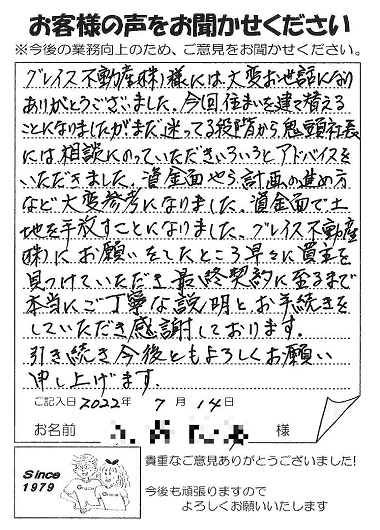 お客様の声をお聞かせください
※今後の業務向上のため、ご意見をお聞かせください。
グレイス不動産(株)様には大変お世話になり
ありがとうございました。今回住まいを建て替える
ことになりましたがまだ迷ってる段階から鬼頭社長
には相談にのっていただきいろいろとアドバイスを
いただきました。資金面やら計画の進め方
など大変参考になりました。資金面で土
地を手放すことになりました。グレイス不動産
(株)にお願いをしたところ早々に買主を
見つけていただき最終契約に至るまで
本当にご丁寧な説明とお手続きを
していただき感謝しております。
引き続き今後ともよろしくお願い
申し上げます。
ご記入日 2022年 7月 14日
お名前 様
Since
1979
貴重なご意見ありがとうございました!
今後も頑張りますので
よろしくお願いいたします